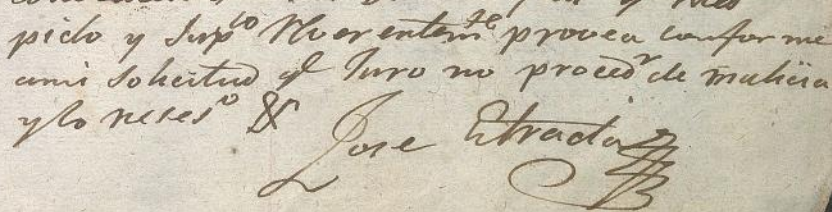 pido y Sup.co Reverentem.te provea conforme
ami Solicitud q.e Juro no proced.r de malicia
y lo neses.o &
Jose Estrada